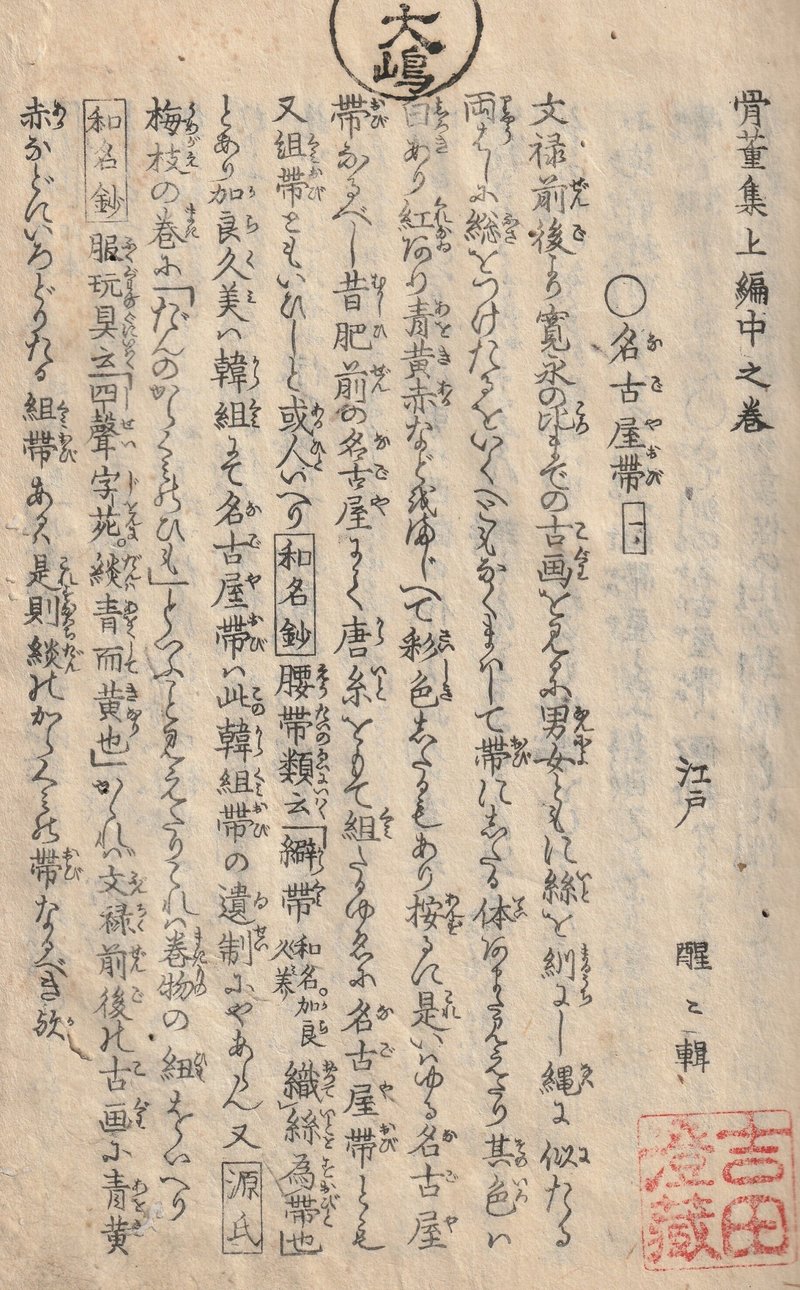 大嶋
骨董集上編中之巻
江戸 醒々輯
吉田澄蔵
○名古屋帯 一
文禄前後より寛永の比までの古画を見るに男女ともに絲を紃にし縄に似たる
両はしに総をつけたるをいくへともなくまはして帯にしたる体あまた見えたり其色は
白あり紅あり青黄赤などをまじへて彩色したるもあり按るに是いはゆる名古屋
帯なるべし昔肥前の名古屋にて唐糸をもて組たるゆゑに名古屋帯とも
又組帯ともいひしと或人いへり和名鈔腰帯類云「繲帯和名。加良久美織絲為帯也」
とあり加良久美は韓組にて名古屋帯は此韓組帯の遺制にやあらん又源氏
梅枝の巻に「だんのからくみのひも」といふこと見えたりこれは巻物の紐をいへり
和名鈔服玩具云「四聲字苑。緂青而黄也」かゝれは文禄前後の古画に青黄
赤などにいろどりたる組帯あるは是則緂のからくみの帯なるべき歟